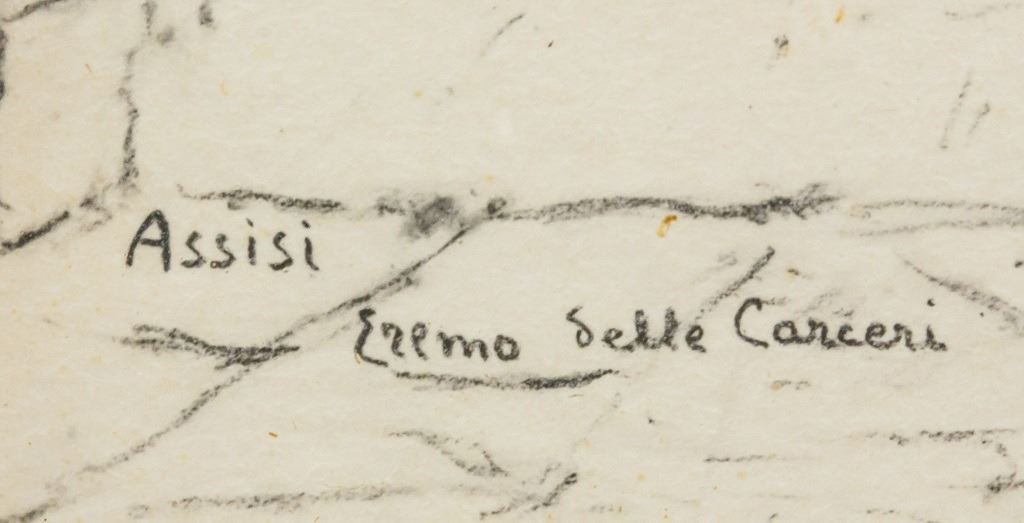 Assisi
Eremo delle Carceri